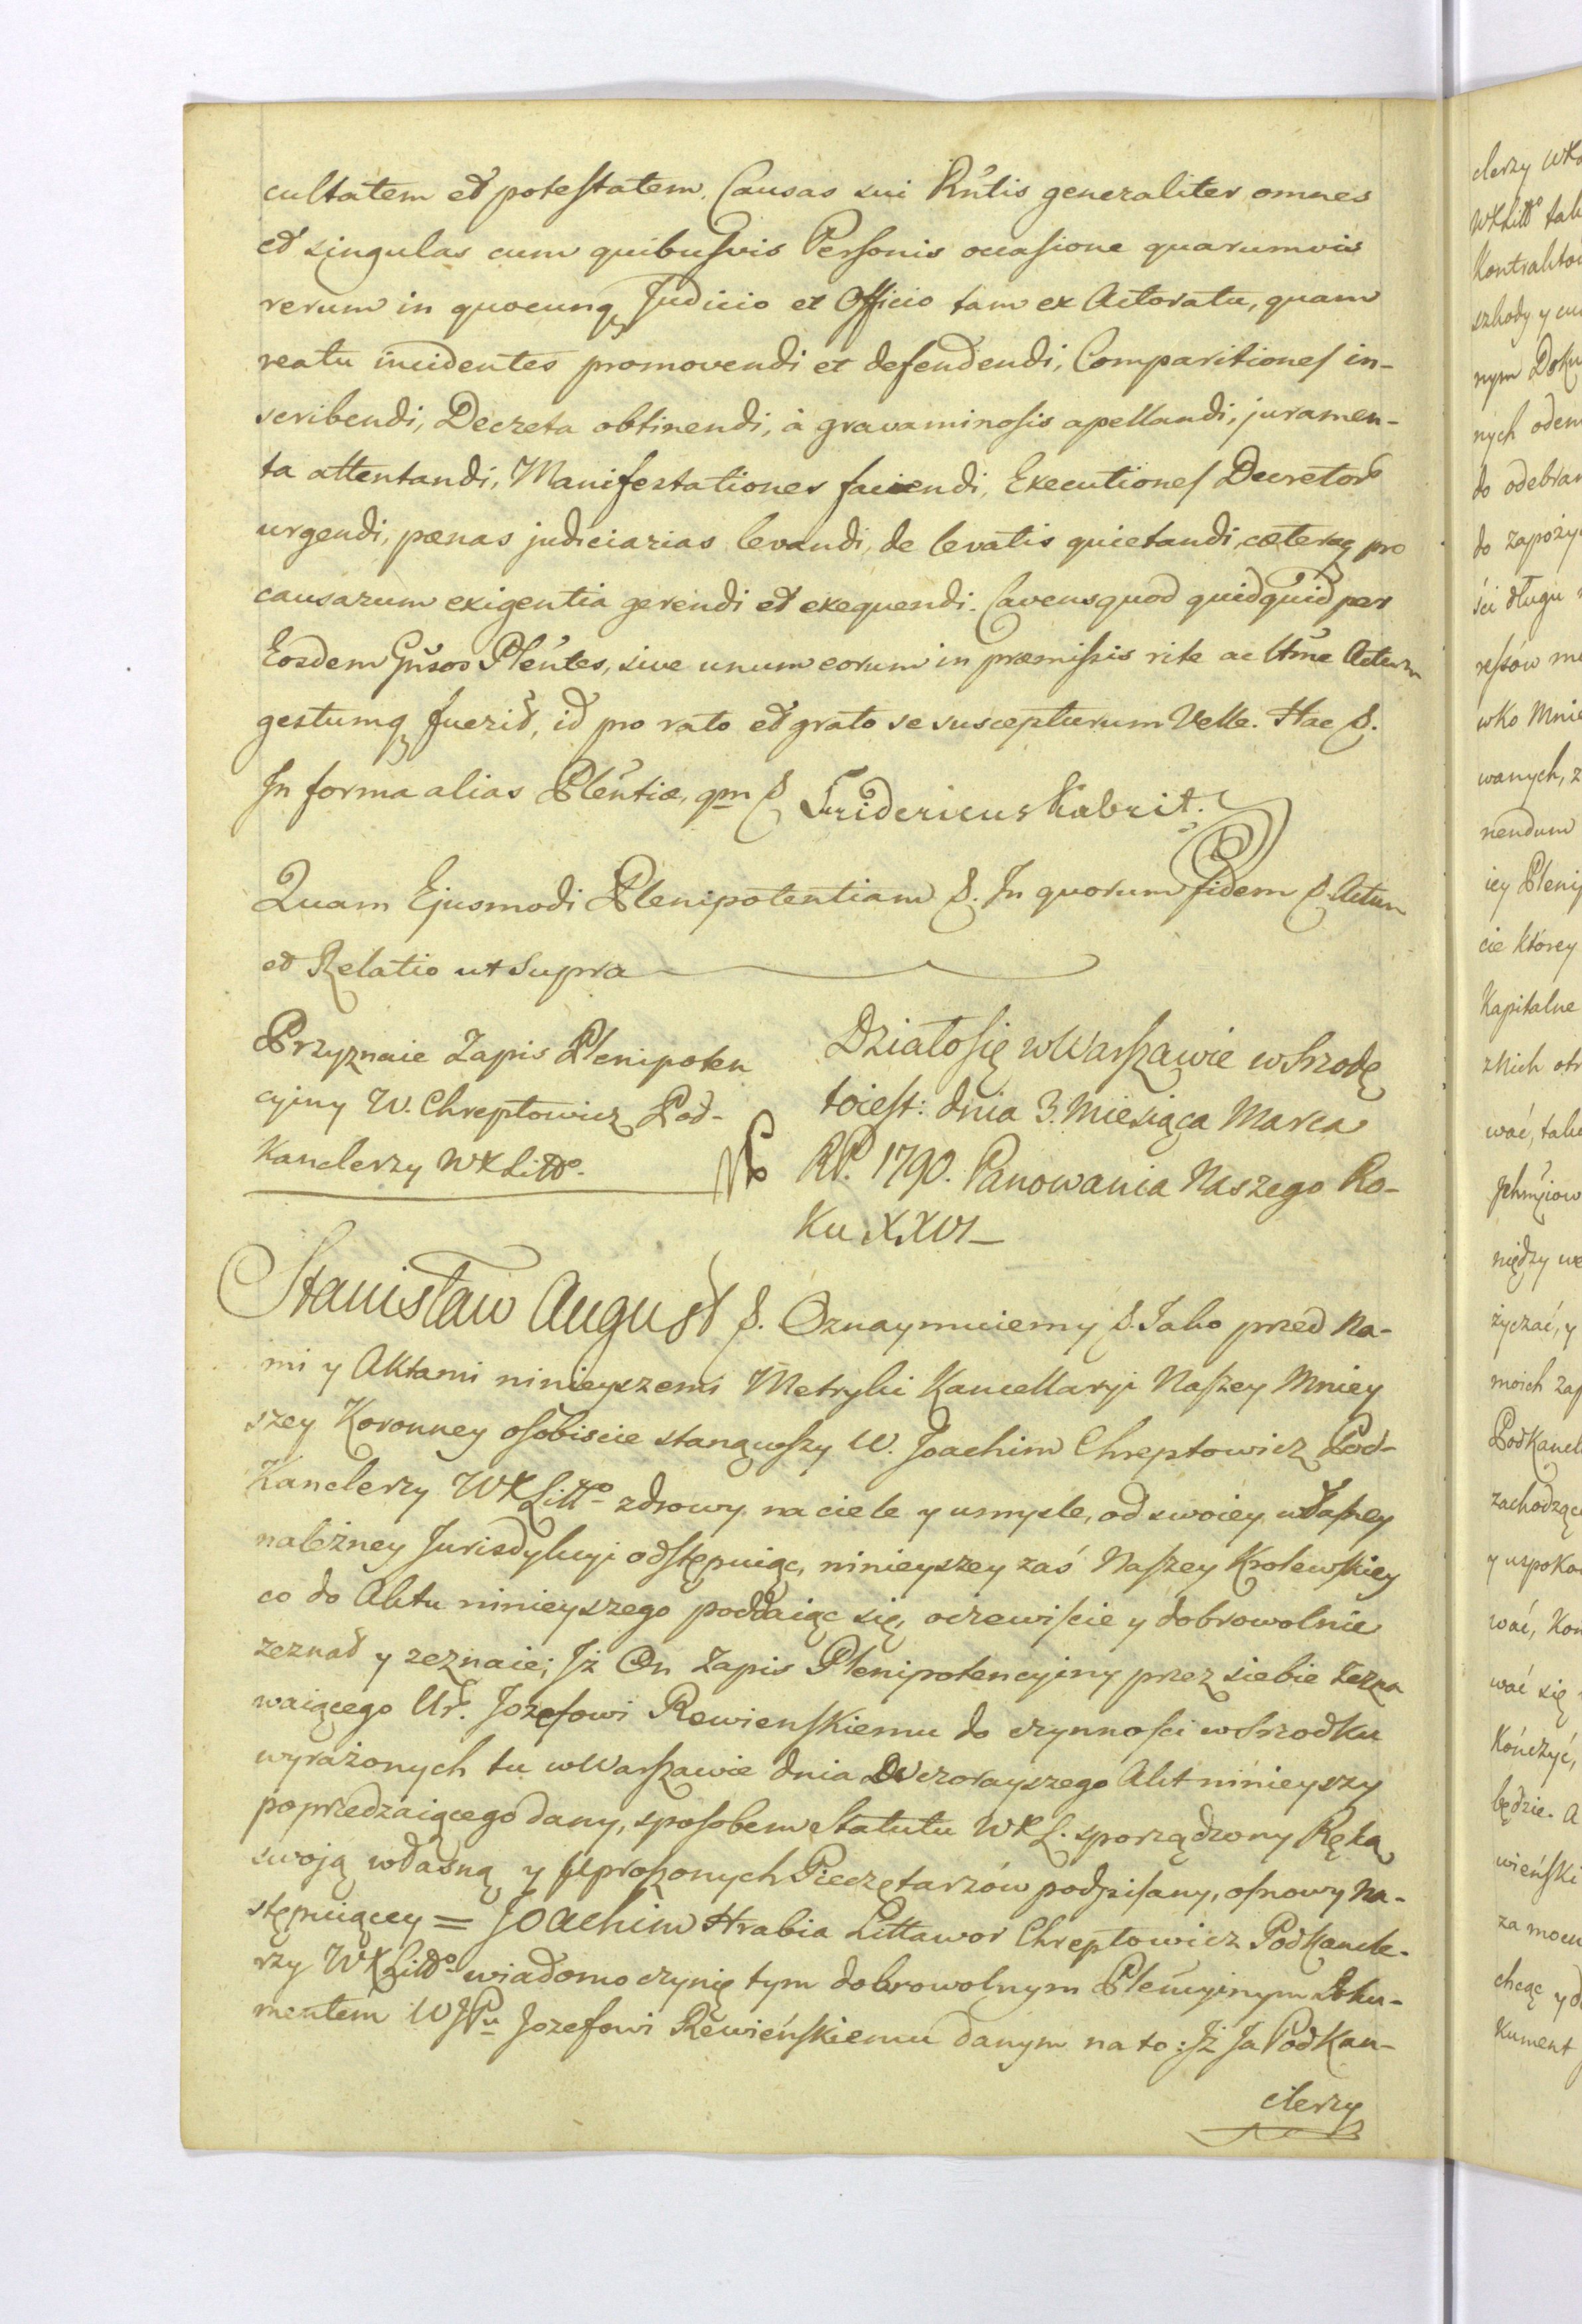 cultatem et potestatem. Causas sui Rntis generaliter omnes
et singulas cum quibusvis Personis occasione quarumvis
rerum in quocunq Judicio et Officio tam ex Actoratu, quam
reatu incidentes promovendi et defendendi, Comparitiones in-
scribendi, Decreta obtinendi, à gravaminosis apellandi, juramen-
ta attentandi, Manifestationes faciendi, Executiones Decretor
urgendi, pænas judiciarias levandi, de levatis quietandi cæteraq pro
causarum exigentia gerendi et exequendi. Cavens quod quidquid per
Eosdem Gnsos Plentes, sive unum eorum in præmissis rite ac ltme Actum
gestumq fuerit, id pro rato et grato se suscepturum Velle. Hac &.
In forma alias Plentiæ, qm & Fridericus Kabrit.
Quam Ejusmodi Plenipotentiam &. In quorum fidem & Actum
et Relatio ut Supra
Przyznaie Zapis Plenipoten
cyiny W. Chreptowicz Pod-
Kanclerzy WXLitto.
Działo się w Warszawie w Srzodę
toiest: dnia 3. Miesiąca Marca
RP. 1790. Panowania Naszego Ro-
ku XXVI
Stanisław August &. Oznaymuiemy &. Jako przed Na-
mi y Aktami ninieyszemi Metryki Kancellaryi Naszey Mniey
szey Koronney osobiscie stanąwszy W. Joachim Chreptowicz Pod-
Kanclerzy WXLitto zdrowy na ciele y umysle, od swoiey własney
należney Jurisdykcyi odstępuiąc, ninieyszey zaś Naszey Krolewskiey
co do Aktu ninieyszego poddaiąc się, oczewiscie y dobrowolnie
zeznał y zeznaie; Jż On Zapis Plenipotencyiny przez siebie Zezna
waiącego Ur. Jozefowi Rewienskiemu do czynności w Srzodku
wyrażonych tu w Warszawie dnia Wczorayszego Akt ninieyszy
poprzedzaiącego dany, sposobem Statutu WXL. sporządzony Ręką
swoją własną y Uproszonych Pieczętarzów podpisany, osnowy na-
stępuiącey = Joachim Hrabia Littawor Chreptowicz Podkancle-
rzy WXLitto wiadomo czynię tym dobrowolnym Plencyinym Doku-
mentem WJPu Jozefowi Rewieńskiemu danym na to: Jż Ja Podkan-
clerzy